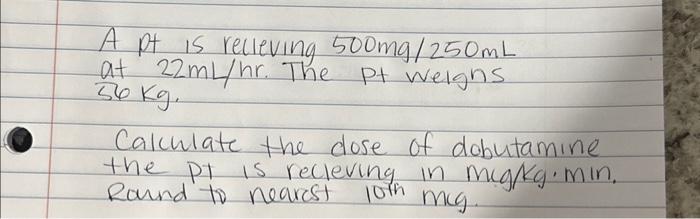 A pt is recieving 500mg/250mL
at 22mL/hr. The pt weighs
56 kg.
Calculate the dose of dobutamine
the pt is recieving in mcg/kg·min.
Round to nearest 10th mcg.